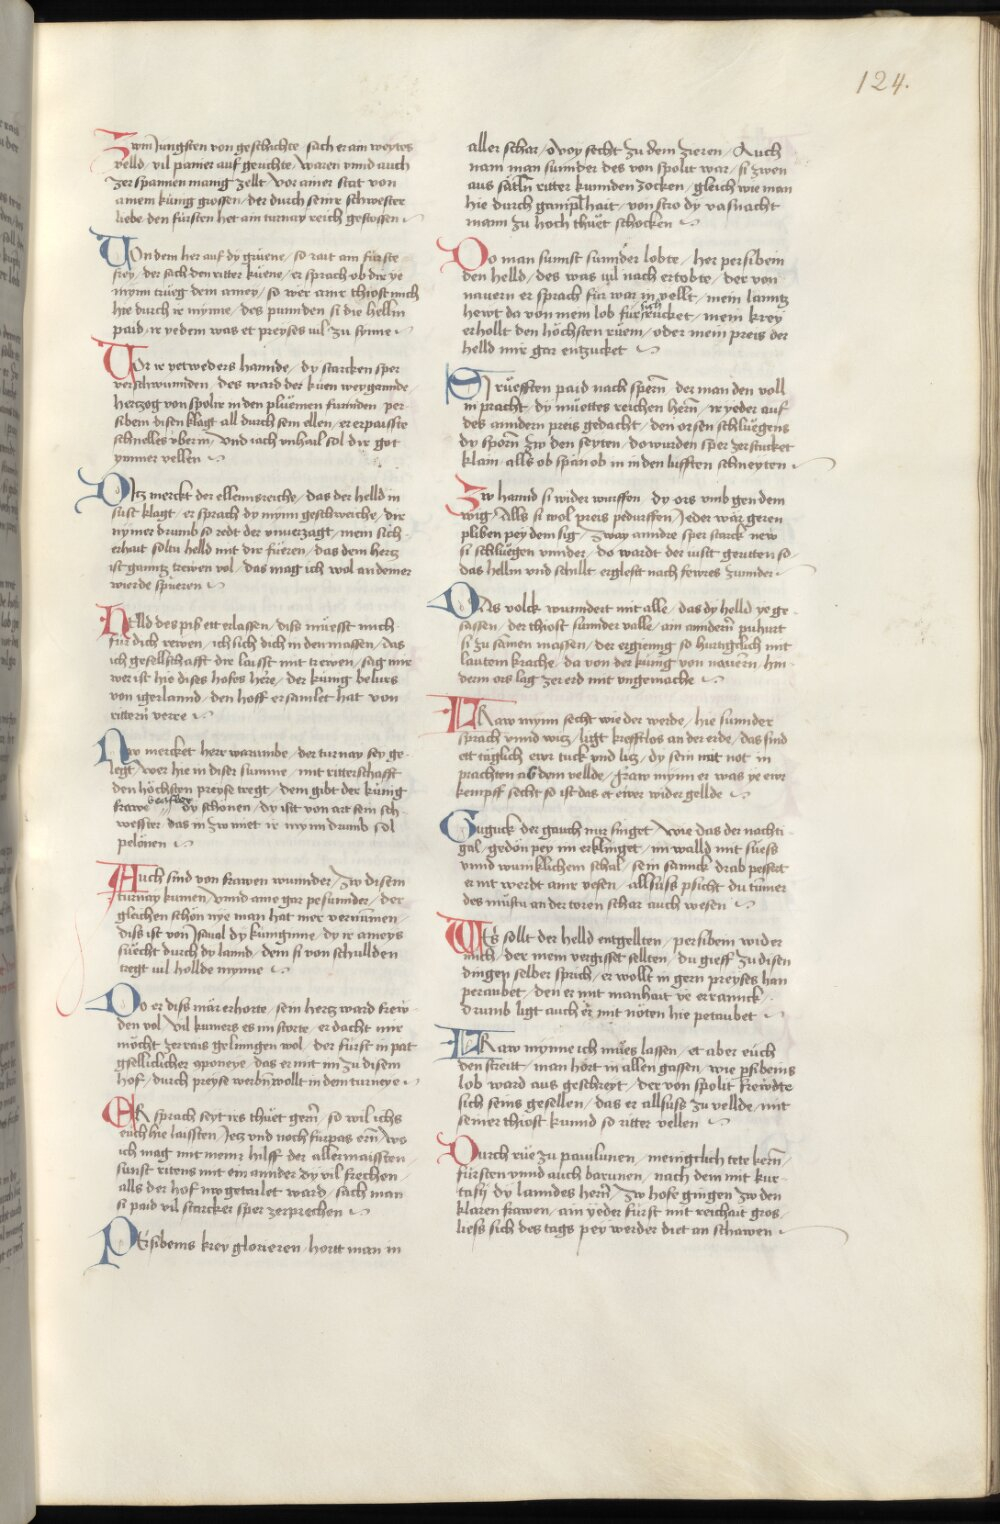 124.
Zwm Jungsten von geschichte / sach er am weytes
velld / vil panier auf geuchte / waren vnnd auch
zerspannen manig zellt / vor ainer stat von
ainem künig gvossen / der durch seinr schwester
liebe den fürsten het ain turnay reich gestossen
Von dem her auf dy grüene / so rait ain fürste
frey / der sach den ritter küene / er sprach ob dir ye
mynn trüeg dem amey / so wer ainr thiost mich
hie durch ir mynne / des punnden si die hellm
paid / ir yedem was et preyses vil zu synne
Vor ir yetweders hannde / dy starcken sper
verschwunnden / des ward der küen weygannde
hertzog von spolit in den plüemen funnden / per-
sibein disen klagt all durch sein ellen / er erpaisste
schnelles vberin / vnd iach vnhail sol dir got
ymmer vellen
Ditz merckt der ellennsreiche / das der helld in
sust klagt / er sprach dy mynn geschweiche / dir
nymer drumb so redt der vnuerzagt / mein sich-
erhait solltu helld mit dir füeren / das dein hertz
ist ganntz trewen vol / das mag ich wol an deiner
wierde spüeren
Helld des pis ett erlassen / diss müesst mich
für dich rewen / ich sich dich in den massen / das
ich gesellschafft dir laisst mit trewen / sag mir
wer ist hie dises hofes here / der künig
von igerlannd / den hoff ersamlet hat von
rittern verre
Nw mercket here warumbe / der turnay sey ge-
legt / wer hie in diser summe / mit ritterschafft
den höchsten preyse tregt / dem gibt der künig
frawe dy schonen / dy ist von art sein sch-
wesster / das in zw miet ir mynn drumb sol
pelönen
Auch sind von frawen wunnder / zw disem
turnay kumen / vnnd aine gar pesunnder / der
gleichen schön nye man hat mer vernümen /
diss ist von Jsaual dy künginne / dy ir ameys
suecht durch dy lannd / dem si von schullden
tregt vil hollde mynne
Do er diss mär erhorte / sein hertz ward frew-
den vol / vil kumers es im storte / er dacht mir
möcht zer rais gelinngen wol / der fürst in pat
gselliclicher aponeye / das er mit im zu disem
hof / durch preyse werbn wollt in dem turneye
Er sprach seyt irs thuet gern / so wil ichs
euch hie laissten / Jetz vnd noch fürpas ern / wo
ich mag mit meinr hilff der allermaissten
sunst ritens mit ein annder dy vil frechen /
alls der hof nw getailet ward / sach man
si paid vil starcker sper zerprechen
Persibeins krey glorieren / hortt man in
aller schar / ovoy secht zu dem zieren / Auch
nam man sunnder des von spolit war / si zwen
aus sätln ritter kunnden zocken / gleich wie man
hie durch gamplhait / von stro dy vasnacht
mann zu hoch thuet schocken
Do man sunnst sunnder lobte / her persibein
den helld / des was vil nach ertobte / der von
nauern er sprach für war in vellt / mein lanntz
hewt da von mein lob fur sich rucket / mein krey
erhollt den höchsten rüem / oder mein preis der
helld mir gar entzucket
Si rüefften paid nach spern / der man den voll
in pracht / dy müettes reichen hern / ir yeder auf
des anndern preis gedacht / den orsen schluegens
dy sporn zw den seyten / do wurden sper zerstucket
klain / alls ob span ob in in den lufften schneyten
Zw hannd si wider wurffen dy ors vmb gen dem
wig / Alls si wol preis pedurffen / Jeder wär geren
pliben pey dem sig / zway anndre sper starck new
si schluegen vnnder / do wardt der iust geritten so
das hellm vnd schillt erglesst nach fewres zunnder
Das volck wunndert mit alle / das dy helld ye ge-
sassen / der thiost sunnder valle / am anndern puhurt
si zu samen massen / der ergieng so hurtigclich mit
lautem krache / da von der künig von nauern hin-
derm ors lag zer erd mit vngemache
Fraw mynn secht wie der werde / hie sunnder
sprach vnnd witz / ligt krefftlos an der erde / das sind
ett täglich ewr tuck vnd litz / dy sein mit not in
prachten ab dem vellde / fraw mynn er was ye ewr
kempff secht so ist das et ewer wider gellde
Guguck der gauch nur singet / wie das der nachti-
gal / gedön pey im erklinget / im walld mit suess
vnnd wunnklichem schal / sein sannck drab pessert
er nit werdt ainr vesen / allsuss psicht du tümer
des müstu an der toren schar auch wesen
Wes sollt der helld entgellten / persibein wider
mich / der mein vergisset sellten / du gieff zu disen
dingen selber sprich / er wollt in gern preyses han
peraubet / den er mit manhait ye errannck /
drumb ligt auch er mit nöten hie petaubet
Fraw mynne ich mües lassen / et aber euch
den streitt / man hört in allen gassen / wie psibeins
lob ward aus geschreyt / der von spolit frewdte
sich seins gesellen / das er allsuss zu vellde / mit
seiner thiost kunnd so ritter vellen
Durch rüe zu paulunen / meingclich tete kern /
fürsten vnnd auch barunen / nach dem mit kur-
tasy dy lanndes hern / zw hofe gingen zw den
klaren frawen / ain yeder fürst mit reichait gros
liess sich des tags pey werder diet an schawen